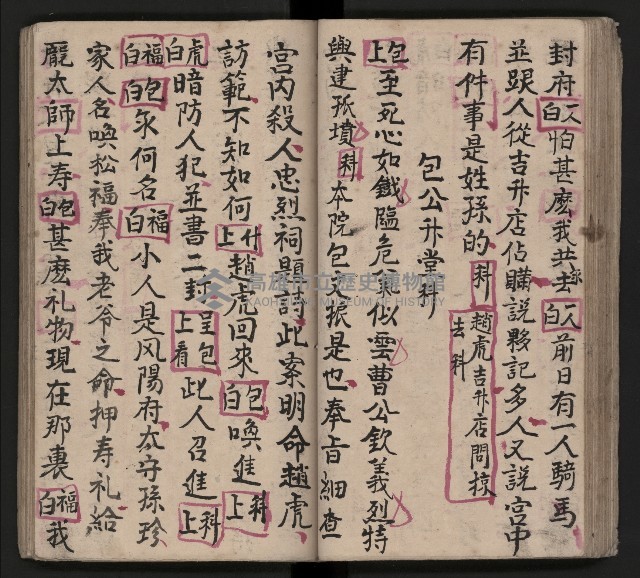 封府人白怕甚麽我共你去人白前日有一人騎馬
並跟人從吉升店佔購説夥記多人又説宮中
有件事是姓孫的科趙虎吉升店問掠去科
包公升堂科
包上至死心如鐵臨危事似雲曹公欽義烈特
與建孤墳科本院包振是也奉旨細查
宮内殺人忠烈祠題詩此案明命趙虎
訪範不知如何什上趙虎回來包白喚進科上
虎白暗防人犯並書二封呈包上看此人召進科上
福白包白汆何名福白小人是风陽府太守孫珍
家人名喚松福奉我老爷之命押寿礼給
龐太師上寿包白甚麽礼物現在那裏福白我
高雄市立歷史博物館
KAOHSIUNG MUSEUM OF HISTORY